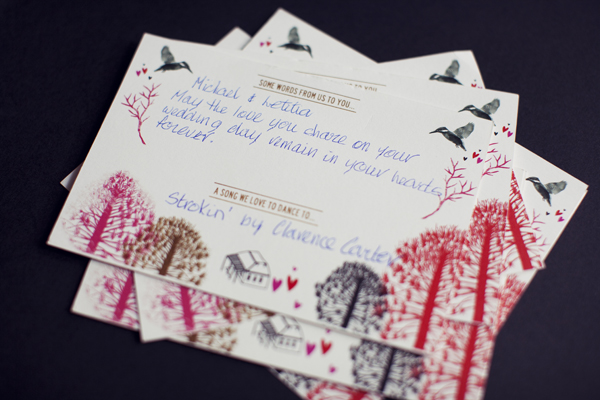 SOME WORDS FROM US TO YOU...
Michael & Letitia
May the love you share on your
wedding day remain in your hearts
forever.
A SONG WE LOVE TO DANCE TO...
Strokin' by Clarence Carter
TO YOU